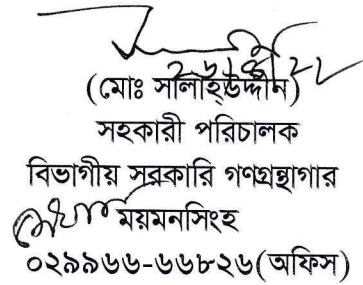 (মোঃ সালাহ্উদ্দীন)
সহকারী পরিচালক
বিভাগীয় সরকারি গণগ্রন্থাগার
ময়মনসিংহ
০২৯৯৬৬-৬৬৮২৬(অফিস)